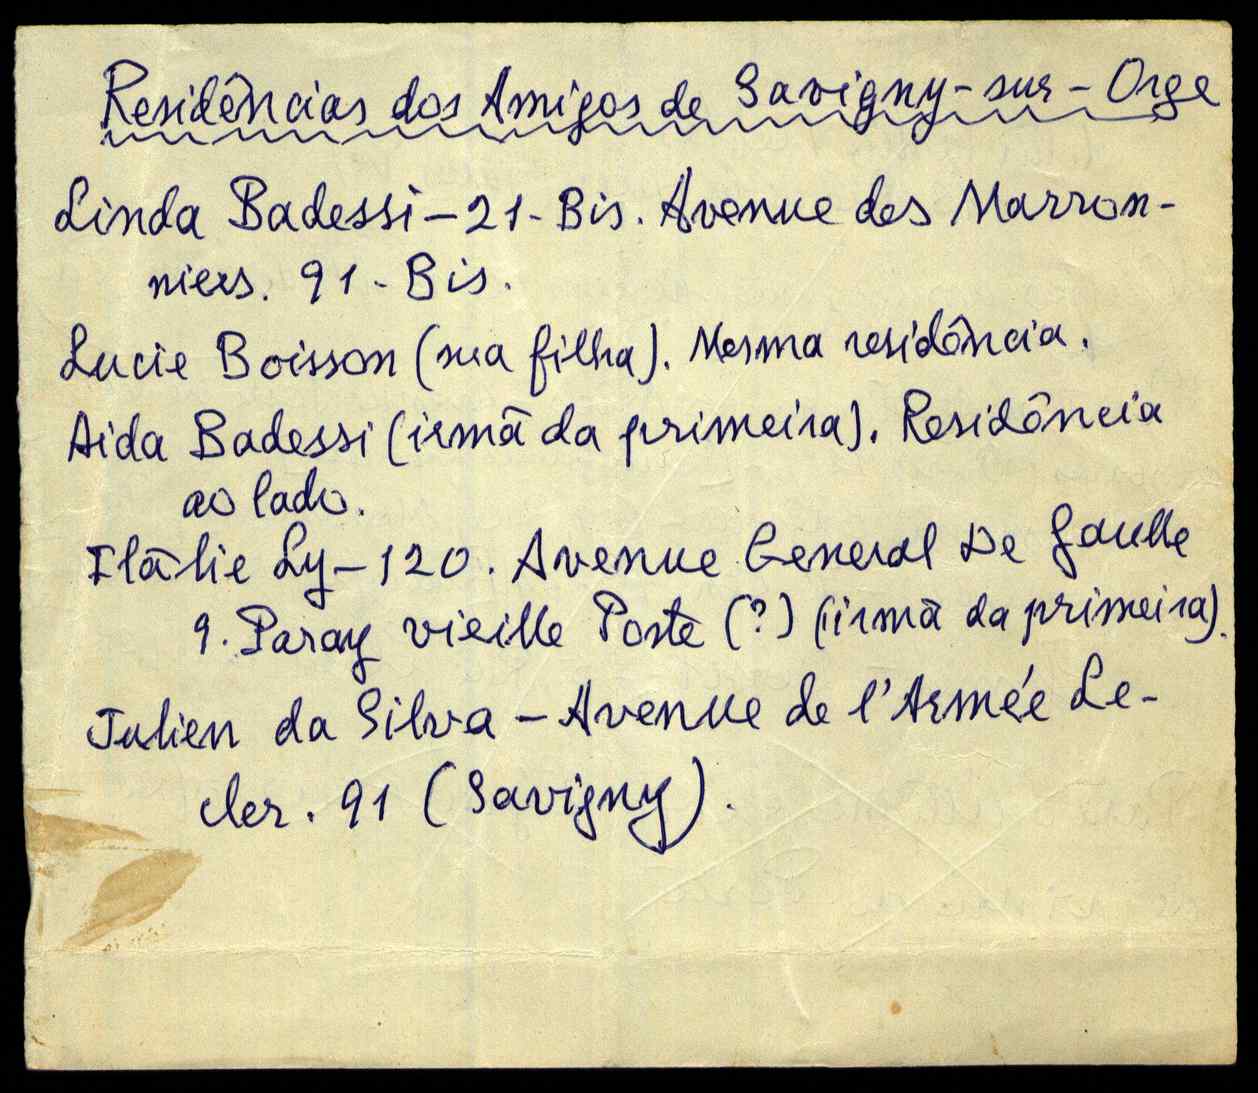 Residências dos Amigos de Savigny-sur-Orge
Linda Badessi – 21 - Bis. Avenue des Marron-
niers. 91 - Bis.
Lucie Boisson (sua filha). Mesma residência.
Aida Badessi (irmã da primeira). Residência
ao lado.
Itálie Ly – 120. Avenue General De Gaulle
9. Paray vieille Poste (?) (irmã da primeira).
Julien da Silva – Avenue de l'Armée Le-
cler. 91 (Savigny).